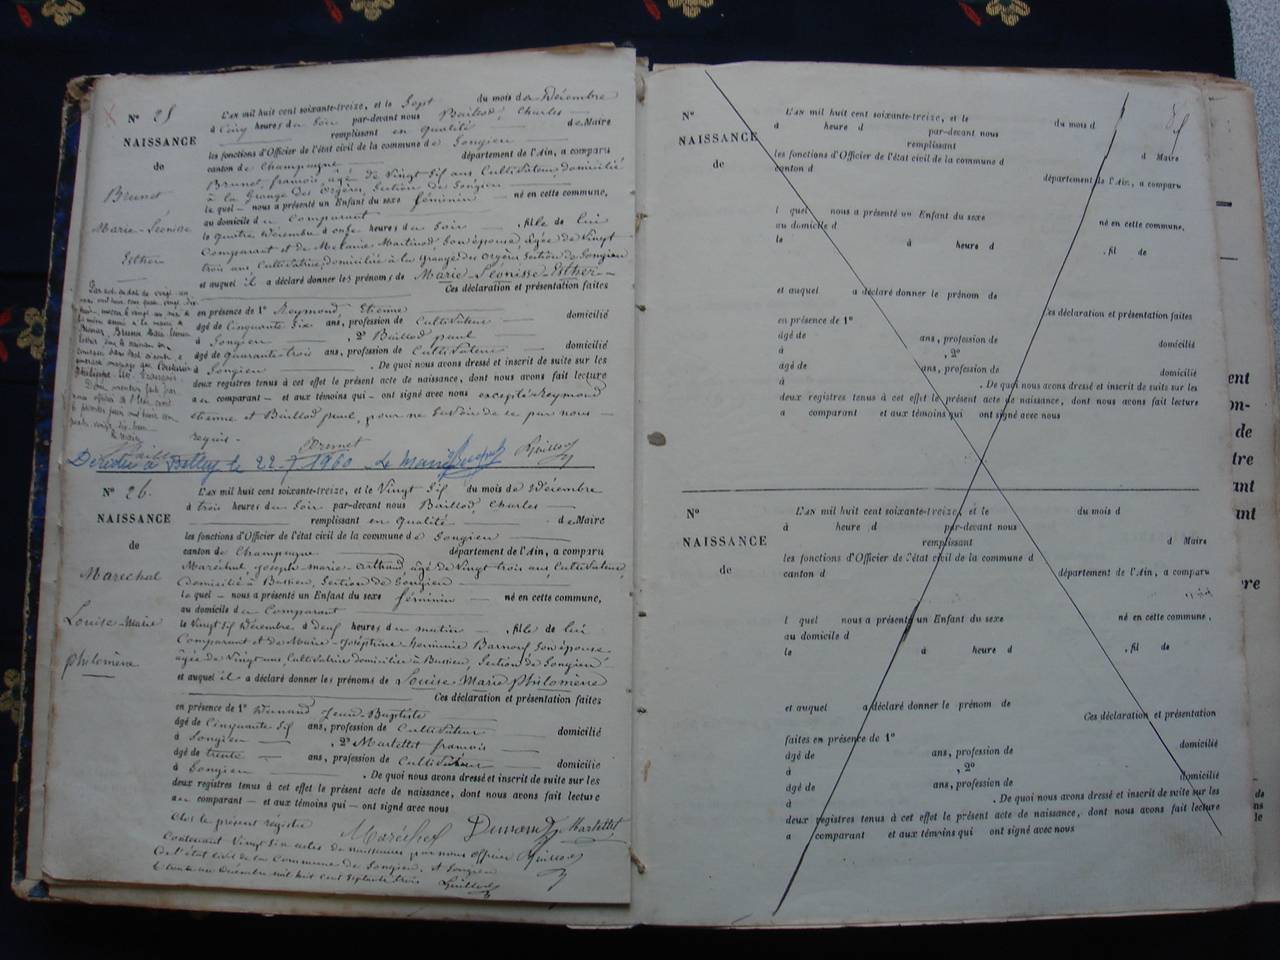 N° 25
NAISSANCE
de
Brunet
Marie-Léonisse
Esther
L'AN mil huit cent soixante-treize, et le Sept du mois de Décembre
à Cinq heures du Soir par-devant nous Baillod, Charles
remplissant en qualité de Maire
les fonctions d'Officier de l'état civil de la commune de Songieu
canton de Champagne département de l'Ain, a comparu
Brunet, françois, âgé de Vingt Sif ans, Cultivateur, domicilié
à la Grange des orgères, Section de Songieu
le quel nous a présenté un Enfant du sexe féminin né en cette commune,
au domicile du Comparant
le quatre Décembre à onze heures du Soir, fille de lui
Comparant et de Mélanie Martinod, Son épouse, âgée de Vingt
trois ans, Cultivatrice, domiciliée à la Grange des orgères Section de Songieu
et auquel il a déclaré donner les prénoms de Marie-Léonisse-Esther
Ces déclaration et présentation faites
en présence de 1° Reymond Etienne domicilié
âgé de Cinquante Six ans, profession de Cultivateur
à Songieu, 2° Baillod paul
âgé de quarante trois ans, profession de Cultivateur domicilié
à Songieu. De quoi nous avons dressé et inscrit de suite sur les
deux registres tenus à cet effet le présent acte de naissance, dont nous avons fait lecture
au comparant et aux témoins qui ont signé avec nous excepté Reymond
etienne et Baillod paul, pour ne Savoir de ce par nous
requis.
Brunet
Décédée à Belley le 22-7-1960 Le Maire
N° 26
NAISSANCE
de
Maréchal
Louise-Marie
philomène
L'AN mil huit cent soixante-treize, et le Vingt Sif du mois de Décembre
à trois heures du Soir par-devant nous Baillod, Charles
remplissant en qualité de Maire
les fonctions d'Officier de l'état civil de la commune de Songieu
canton de Champagne département de l'Ain, a comparu
Maréchal, joseph-marie âgé de Vingt trois ans, Cultivateur,
domicilié à Bassieu, Section de Songieu
le quel nous a présenté un Enfant du sexe féminin né en cette commune,
au domicile du Comparant
le Vingt Sif Décembre à neuf heures du matin, fille de lui
Comparant et de Marie-Joséphine Son épouse
âgée de Vingt ans Cultivatrice domiciliée à Bassieu, Section de Songieu
et auquel il a déclaré donner les prénoms de Louise-Marie Philomène
Ces déclaration et présentation faites
en présence de 1° Jean-Baptiste
âgé de Cinquante Sif ans, profession de Cultivateur domicilié
à Songieu, 2° Martettet françois
âgé de trente ans, profession de Cultivateur domicilié
à Songieu. De quoi nous avons dressé et inscrit de suite sur les
deux registres tenus à cet effet le présent acte de naissance, dont nous avons fait lecture
au comparant et aux témoins qui ont signé avec nous
Maréchal Martettet
Clos le présent régistre
Contenant Vingt Six actes de naissances par nous officier
de l'état civil de la Commune de Songieu. A Songieu
le trente un Décembre mil huit cent Septante trois
N°
NAISSANCE
de
L'AN mil huit cent soixante-treize, et le du mois d
à heure d par-devant nous
remplissant d Maire
les fonctions d'Officier de l'état civil de la commune d
canton d département de l'Ain, a comparu
l quel nous a présenté un Enfant du sexe né en cette commune,
au domicile d
le à heure d , fil de
et auquel a déclaré donner le prénom de
Ces déclaration et présentation faites
en présence de 1°
âgé de ans, profession de domicilié
à , 2°
âgé de ans, profession de domicilié
à . De quoi nous avons dressé et inscrit de suite sur les
deux registres tenus à cet effet le présent acte de naissance, dont nous avons fait lecture
a comparant et aux témoins qui ont signé avec nous
N°
NAISSANCE
de
L'AN mil huit cent soixante-treize, et le du mois d
à heure d par-devant nous
remplissant d Maire
les fonctions d'Officier de l'état civil de la commune d
canton d département de l'Ain, a comparu
l quel nous a présenté un Enfant du sexe né en cette commune,
au domicile d
le à heure d , fil de
et auquel a déclaré donner le prénom de
Ces déclaration et présentation
faites en présence de 1°
âgé de ans, profession de domicilié
à , 2°
âgé de ans, profession de domicilié
à . De quoi nous avons dressé et inscrit de suite sur les
deux registres tenus à cet effet le présent acte de naissance, dont nous avons fait lecture
a comparant et aux témoins qui ont signé avec nous